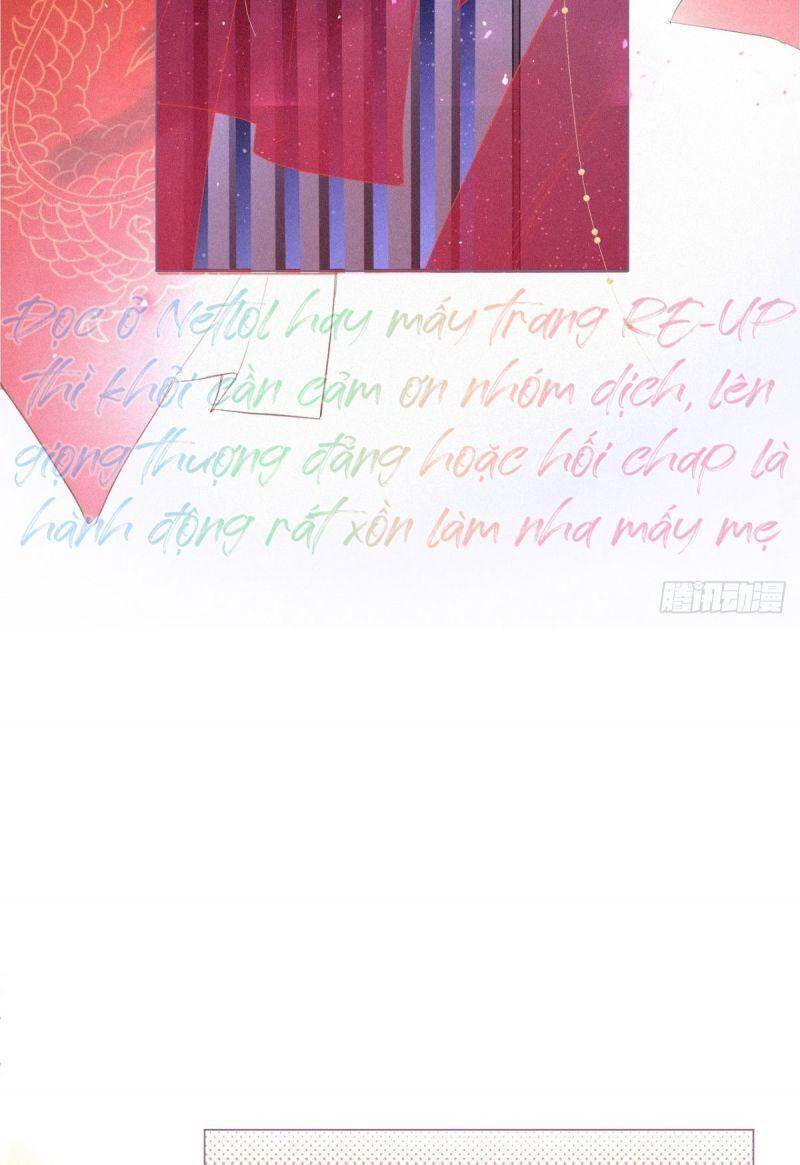 Đọc ở Netlol hay mấy trang RE-UP
thì khỏi cần cảm ơn nhóm dịch, lên
giọng thượng đẳng hoặc hối chap là
hành động rất xồn làm nha mấy mẹ
腾讯动漫